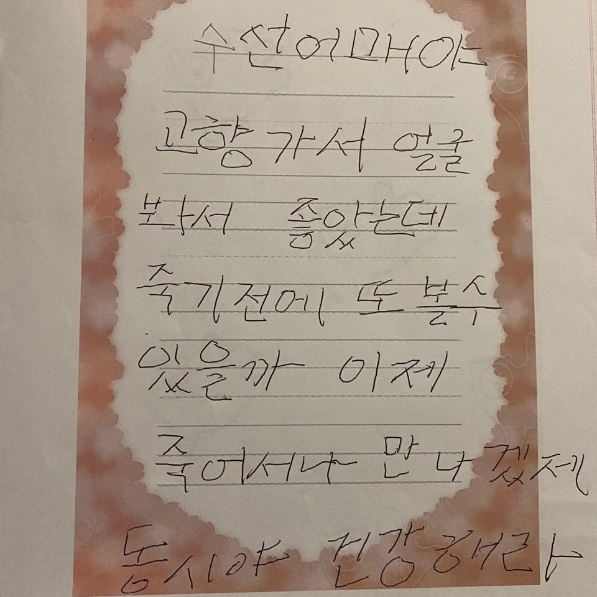 수선어매야
고향 가서 얼굴
봐서 좋았는데
죽기전에 또 볼수
있을까 이제
죽어서나 만나겠제
동시야 건강해라